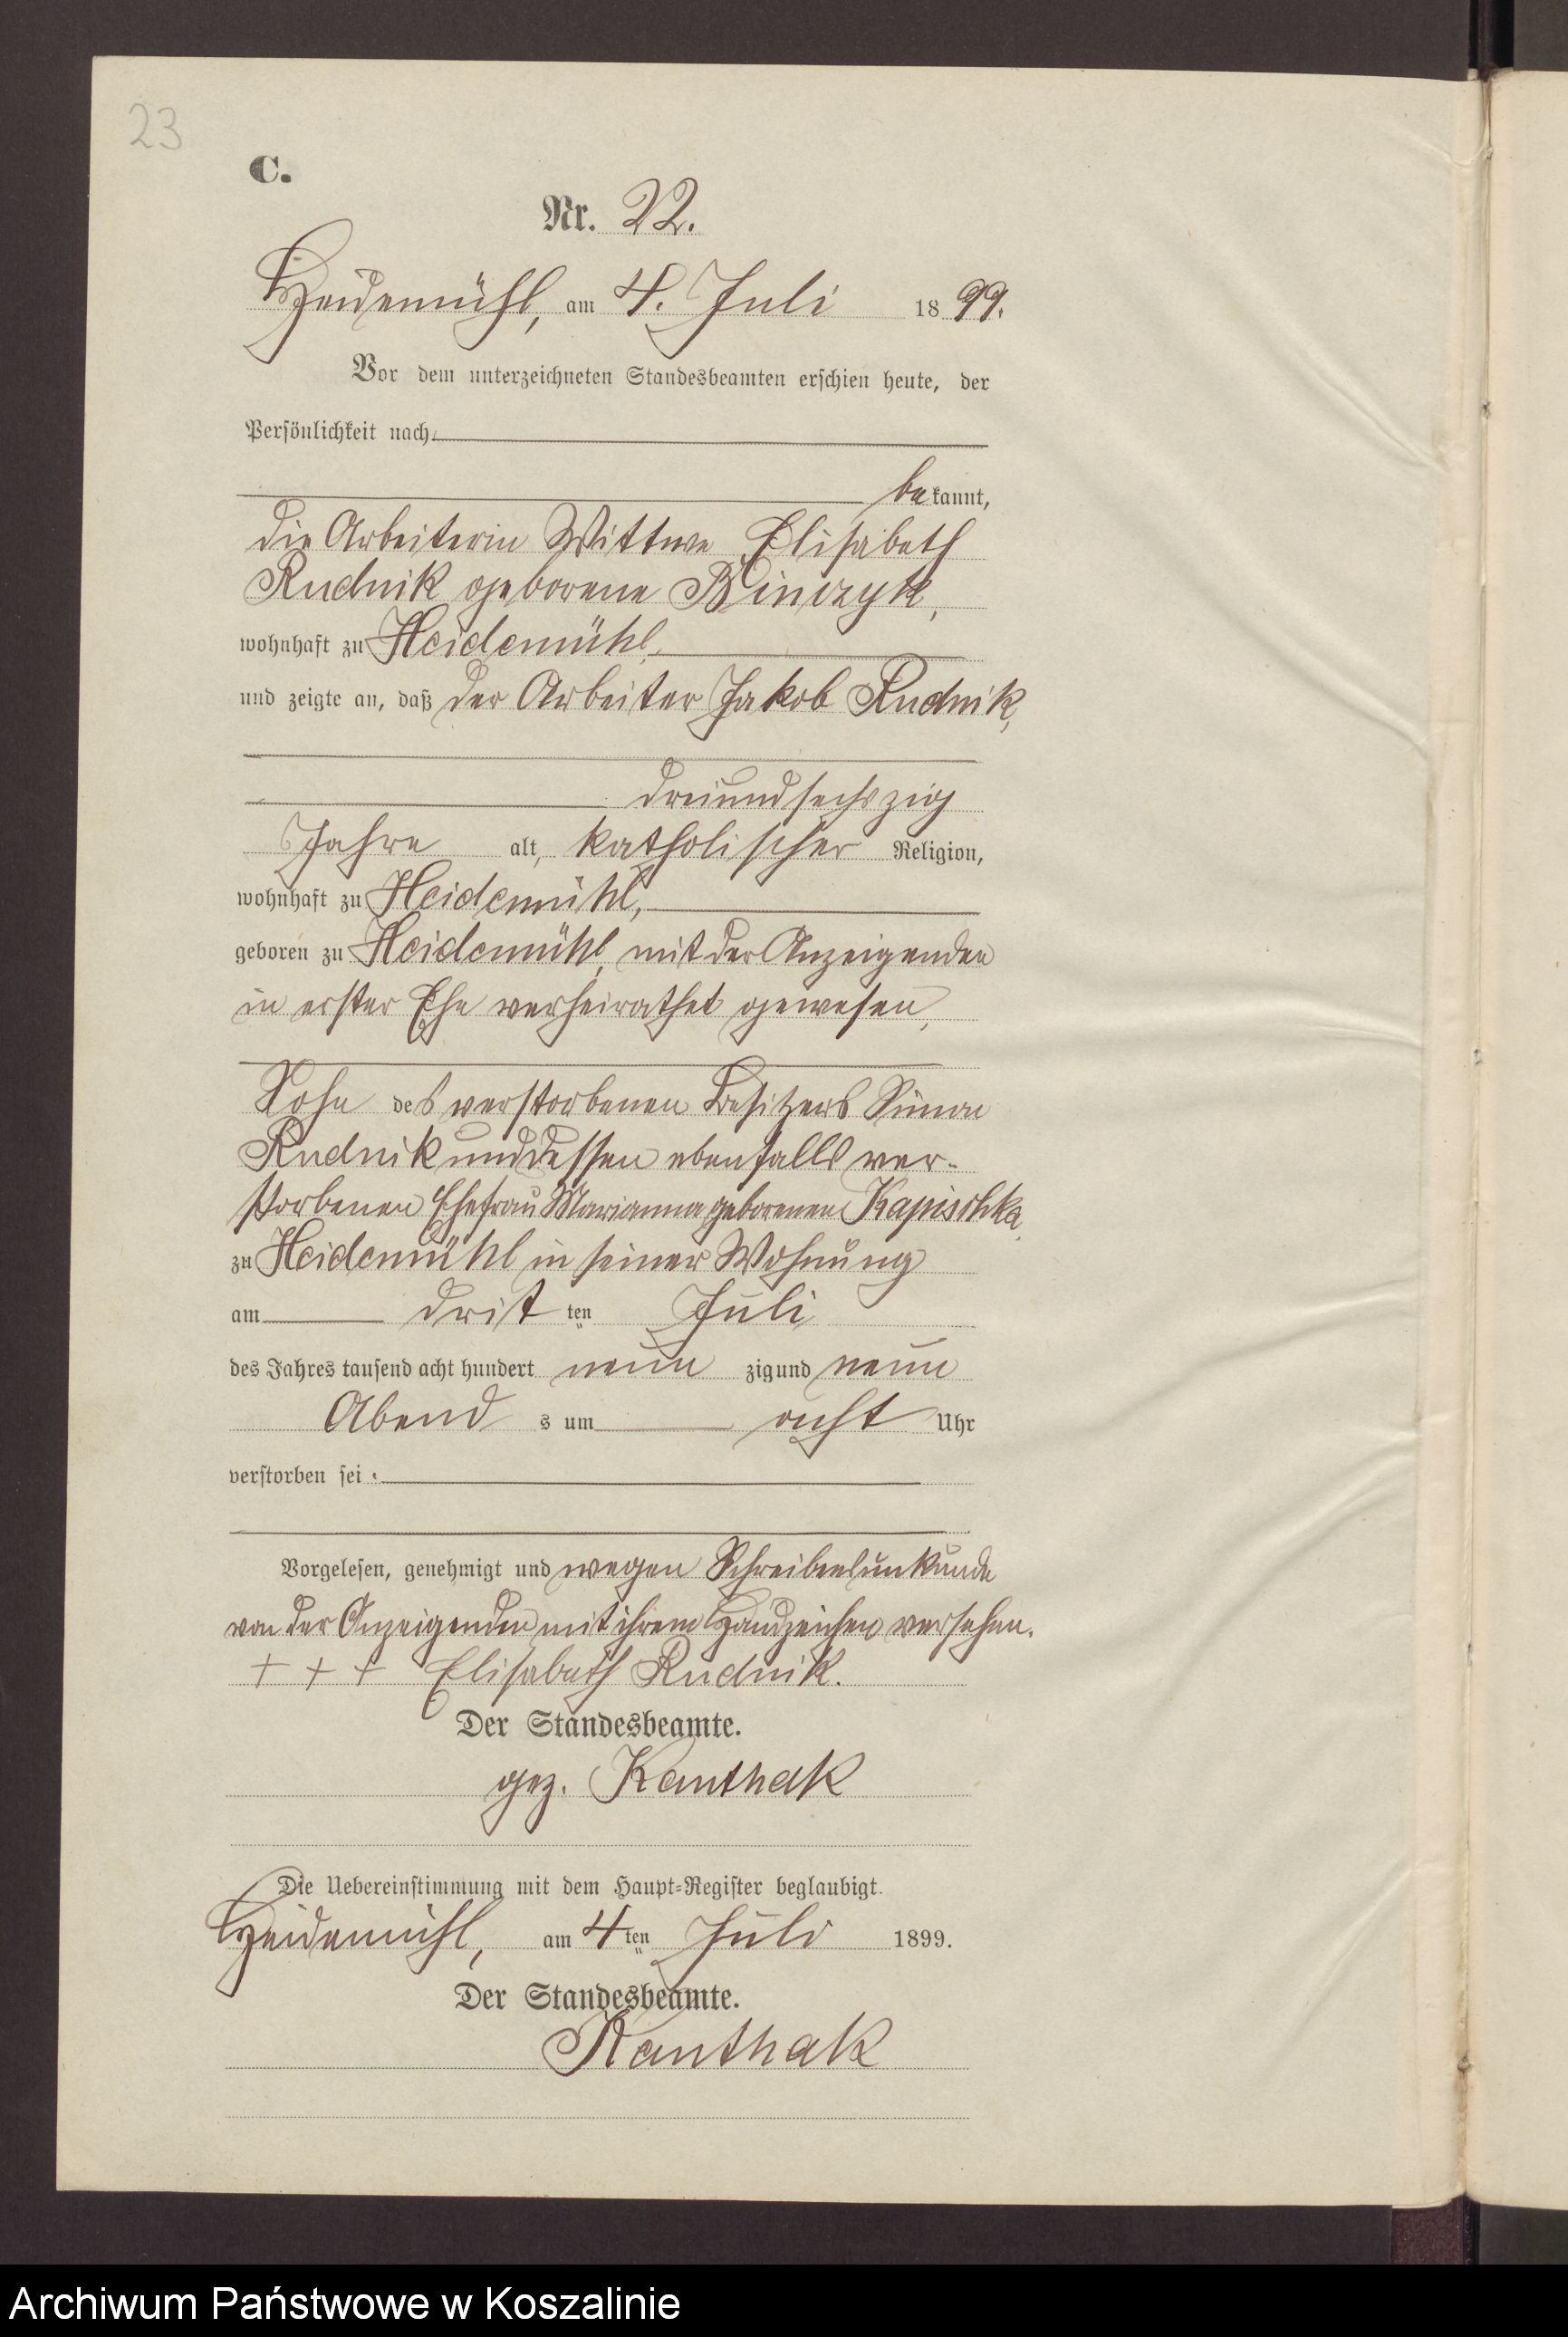 23
C.
Nr. 22.
Heidemühl, am 4. Juli 1899.
Vor dem unterzeichneten Standesbeamten erschien heute, der
Persönlichkeit nach
bekannt,
die Arbeiterin Wittwe Elisabeth
Rudnik geborene Binczyk,
wohnhaft zu Heidemühl,
und zeigte an, daß der Arbeiter Jakob Rudnik,
dreiundsechszig
Jahre alt, katholischer Religion,
wohnhaft zu Heidemühl,
geboren zu Heidemühl, mit der Anzeigenden
in erster Ehe verheirathet gewesen,
Sohn des verstorbenen Besitzers Simon
Rudnik und dessen ebenfalls ver-
storbenen Ehefrau Marianna geborenen Kapischka,
zu Heidemühl in seiner Wohnung
am dritten Juli
des Jahres tausend acht hundert neunzig und neun
Abends um acht Uhr
verstorben sei.
Vorgelesen, genehmigt und wegen Schreibensunkunde
von der Anzeigenden mit ihrem Handzeichen versehen.
+ + + Elisabeth Rudnik.
Der Standesbeamte.
gez. Kanthak
Die Uebereinstimmung mit dem Haupt-Register beglaubigt.
Heidemühl, am 4ten Juli 1899.
Der Standesbeamte.
Kanthak
Archiwum Państwowe w Koszalinie